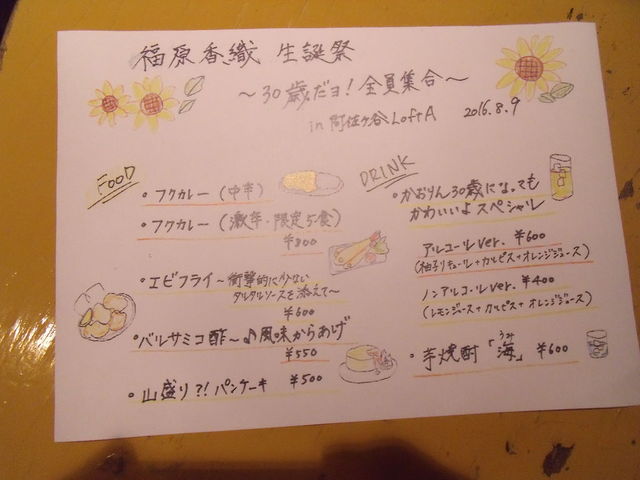 福原香織 生誕祭
～30歳だョ!全員集合～
in 阿佐ヶ谷LoftA 2016.8.9
FOOD
・フクカレー(中辛)
・フクカレー(激辛・限定5食)
¥800
・エビフライ～衝撃的に少ない
タルタルソースを添えて～
¥600
・バルサミコ酢～♪風味からあげ
¥550
・山盛り?!パンケーキ ¥500
DRINK
・かおりん30歳になっても
かわいいよスペシャル
アルコールver. ¥600
(柚子リキュール+カルピス+オレンジジュース)
ノンアルコールver. ¥400
(レモンジュース+カルピス+オレンジジュース)
・芋焼酎「海」 ¥600
うみ